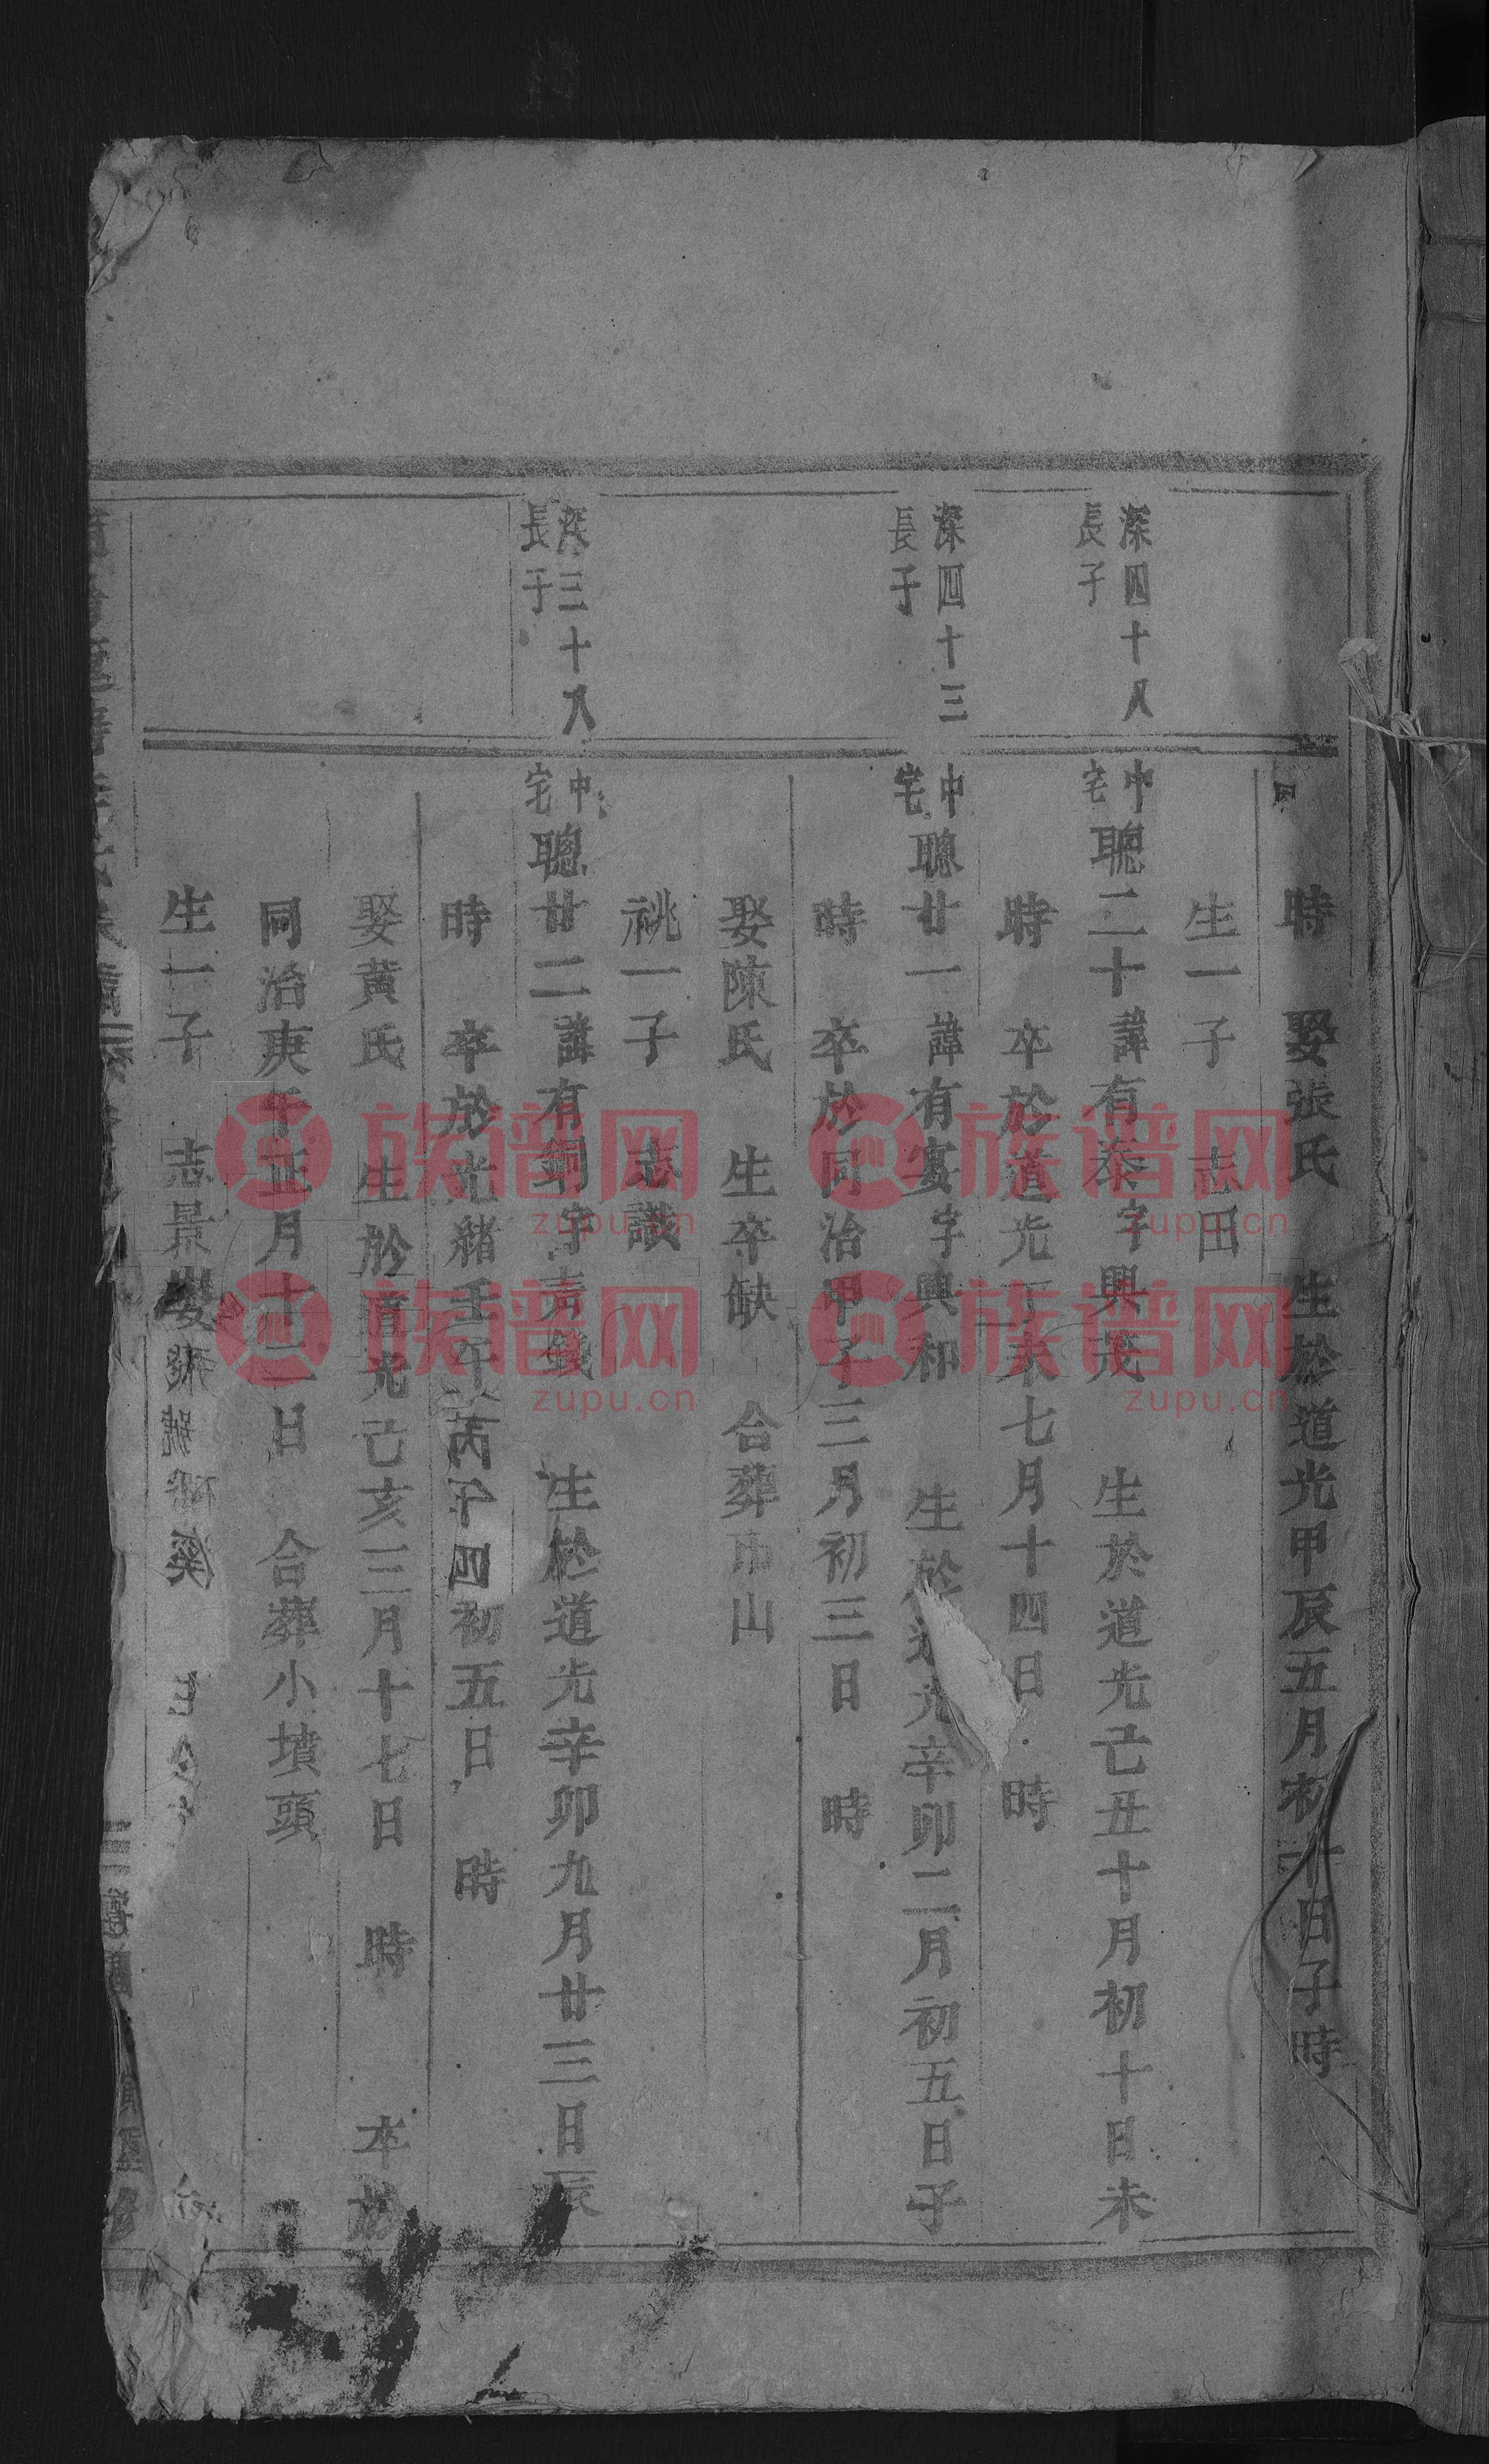 時　娶張氏　生於道光甲辰五月初十日子時
生一子　志田
深四十八
長子
中宅聰二十諱有泰字興茂　生於道光己丑十月初十日未
時　卒於道光丁未七月十四日　時
深四十三
長子
中宅聰廿一諱有宴字興和　生於道光辛卯二月初五日子
時　卒於同治甲子三月初三日　時
娶陳氏　生卒缺　合葬市山
祧一子　志識
深三十八
長子
中宅聰廿二諱有銅字青錢　生於道光辛卯九月廿三日辰
時　卒於光緒壬午　初五日　時
娶黃氏　生於道光己亥三月十七日　時　卒於
同治庚午正月十二日　合葬小墳頭
生一子　志景
族谱网
zupu.cn
族谱网
zupu.cn
族谱网
zupu.cn
族谱网
zupu.cn